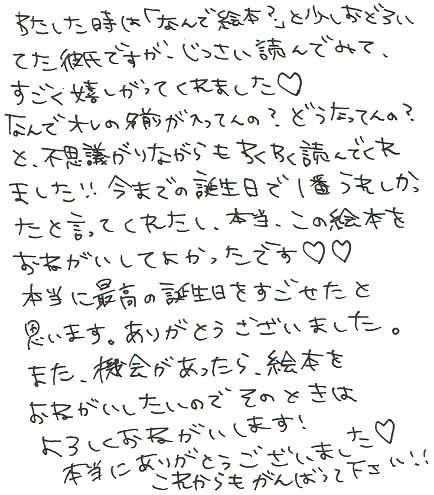 わたした時は「なんで絵本？」と少しおどろい
てた彼氏ですが、じっさい読んでみて、
すごく嬉しがってくれました♡
なんでオレの名前が入ってんの？どうなってんの？
と、不思議がりながらもわくわく読んでくれ
ました!! 今までの誕生日で1番うれしかっ
たと言ってくれたし、本当、この絵本を
おねがいしてよかったです♡♡
本当に最高の誕生日をすごせたと
思います。ありがとうございました。
また、機会があったら、絵本を
おねがいしたいのでそのときは
よろしくおねがいします!
本当にありがとうございました♡
これからもがんばって下さい!!